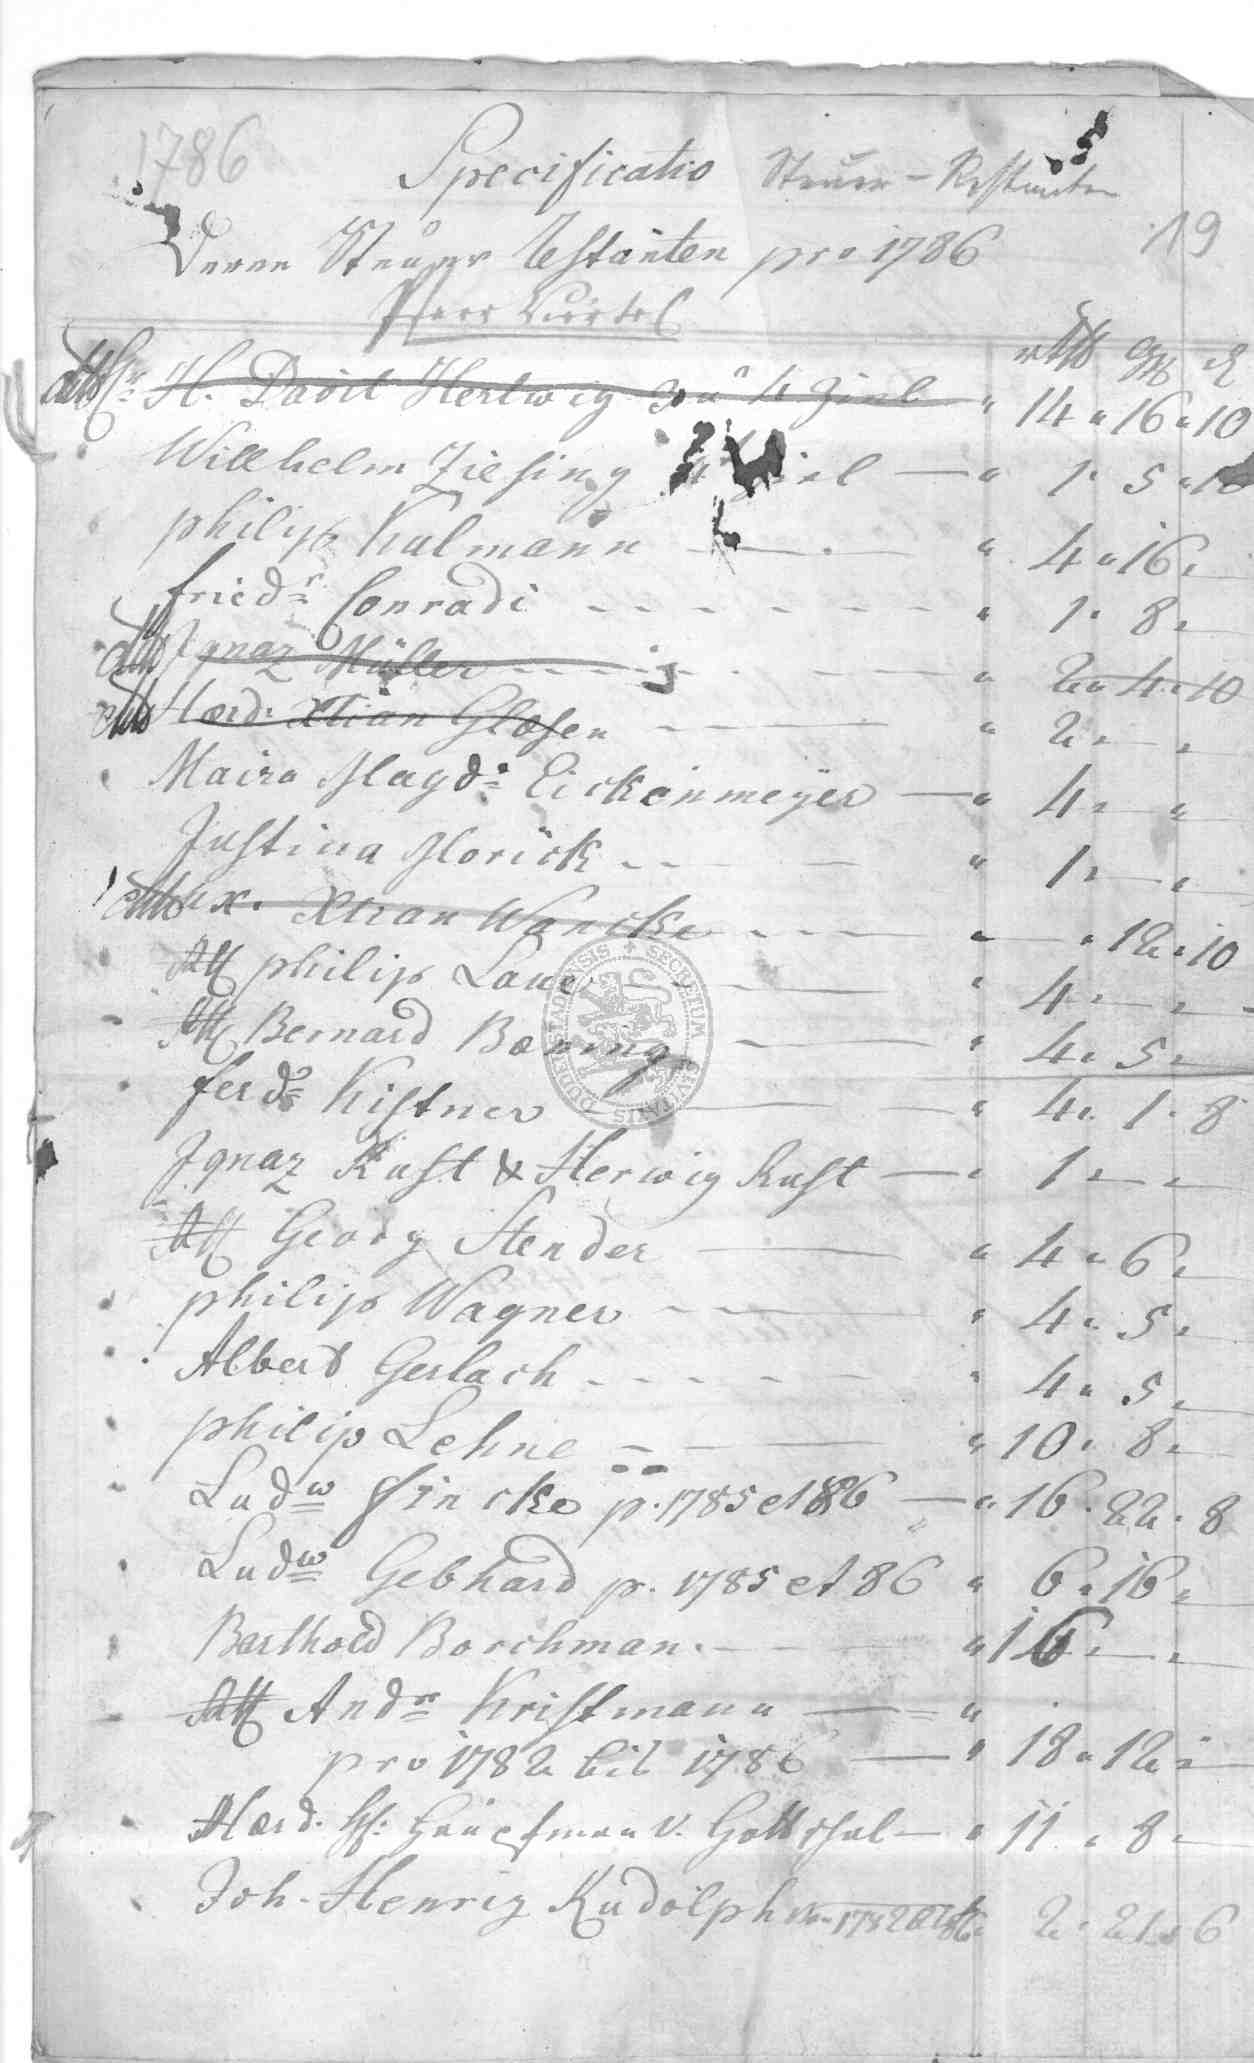 1786
5
Specificatio Steuer-Restanten
19
Deren Steuer restanten pro 1786
Viertel
rthl ggr d
H. Davit Hertwig 4 Ziel " 14 " 16 " 10
Willhelm Ziesing Ziel — " 1 " 5 " 10
philip Kulmann — " 4 " 16 "
friedr Conradi " 1 " 8 "
Ignaz Müller " 2 " 4 " 10
Hærd. Xtian Glasen " 2 " — "
Maira Magd: Eickenmeÿer — " 4 " — "
Justina Morick " 1 " — "
ux. Xtian Wancke " — " 12 " 10
philip Laue " 4 " — "
Bernard Bæning " 4 " 5 "
ferd: Kistner " 4 " 1 " 8
Ignaz Rust & Herwig Rust — " 1 " — "
Georg Stender " 4 " 6 "
philip Wagner " 4 " 5 "
Albert Gerlach " 4 " 5 "
philip Lehne " 10 " 8 "
Ludw fincke p. 1785 et 86 — " 16 " 22 " 8
Ludw Gebhard p. 1785 et 86 " 6 " 16 "
Berthold Borchman. " 16 " — "
Andr Kristmann — "
pro 1782 bis 1786 — " 18 " 12 "
Hærd. v. — " 11 " 8 "
Joh. Henrig Rudolph " 2 " 21 " 6
SECRETUM CIVITATIS DUDERSTADENSIS